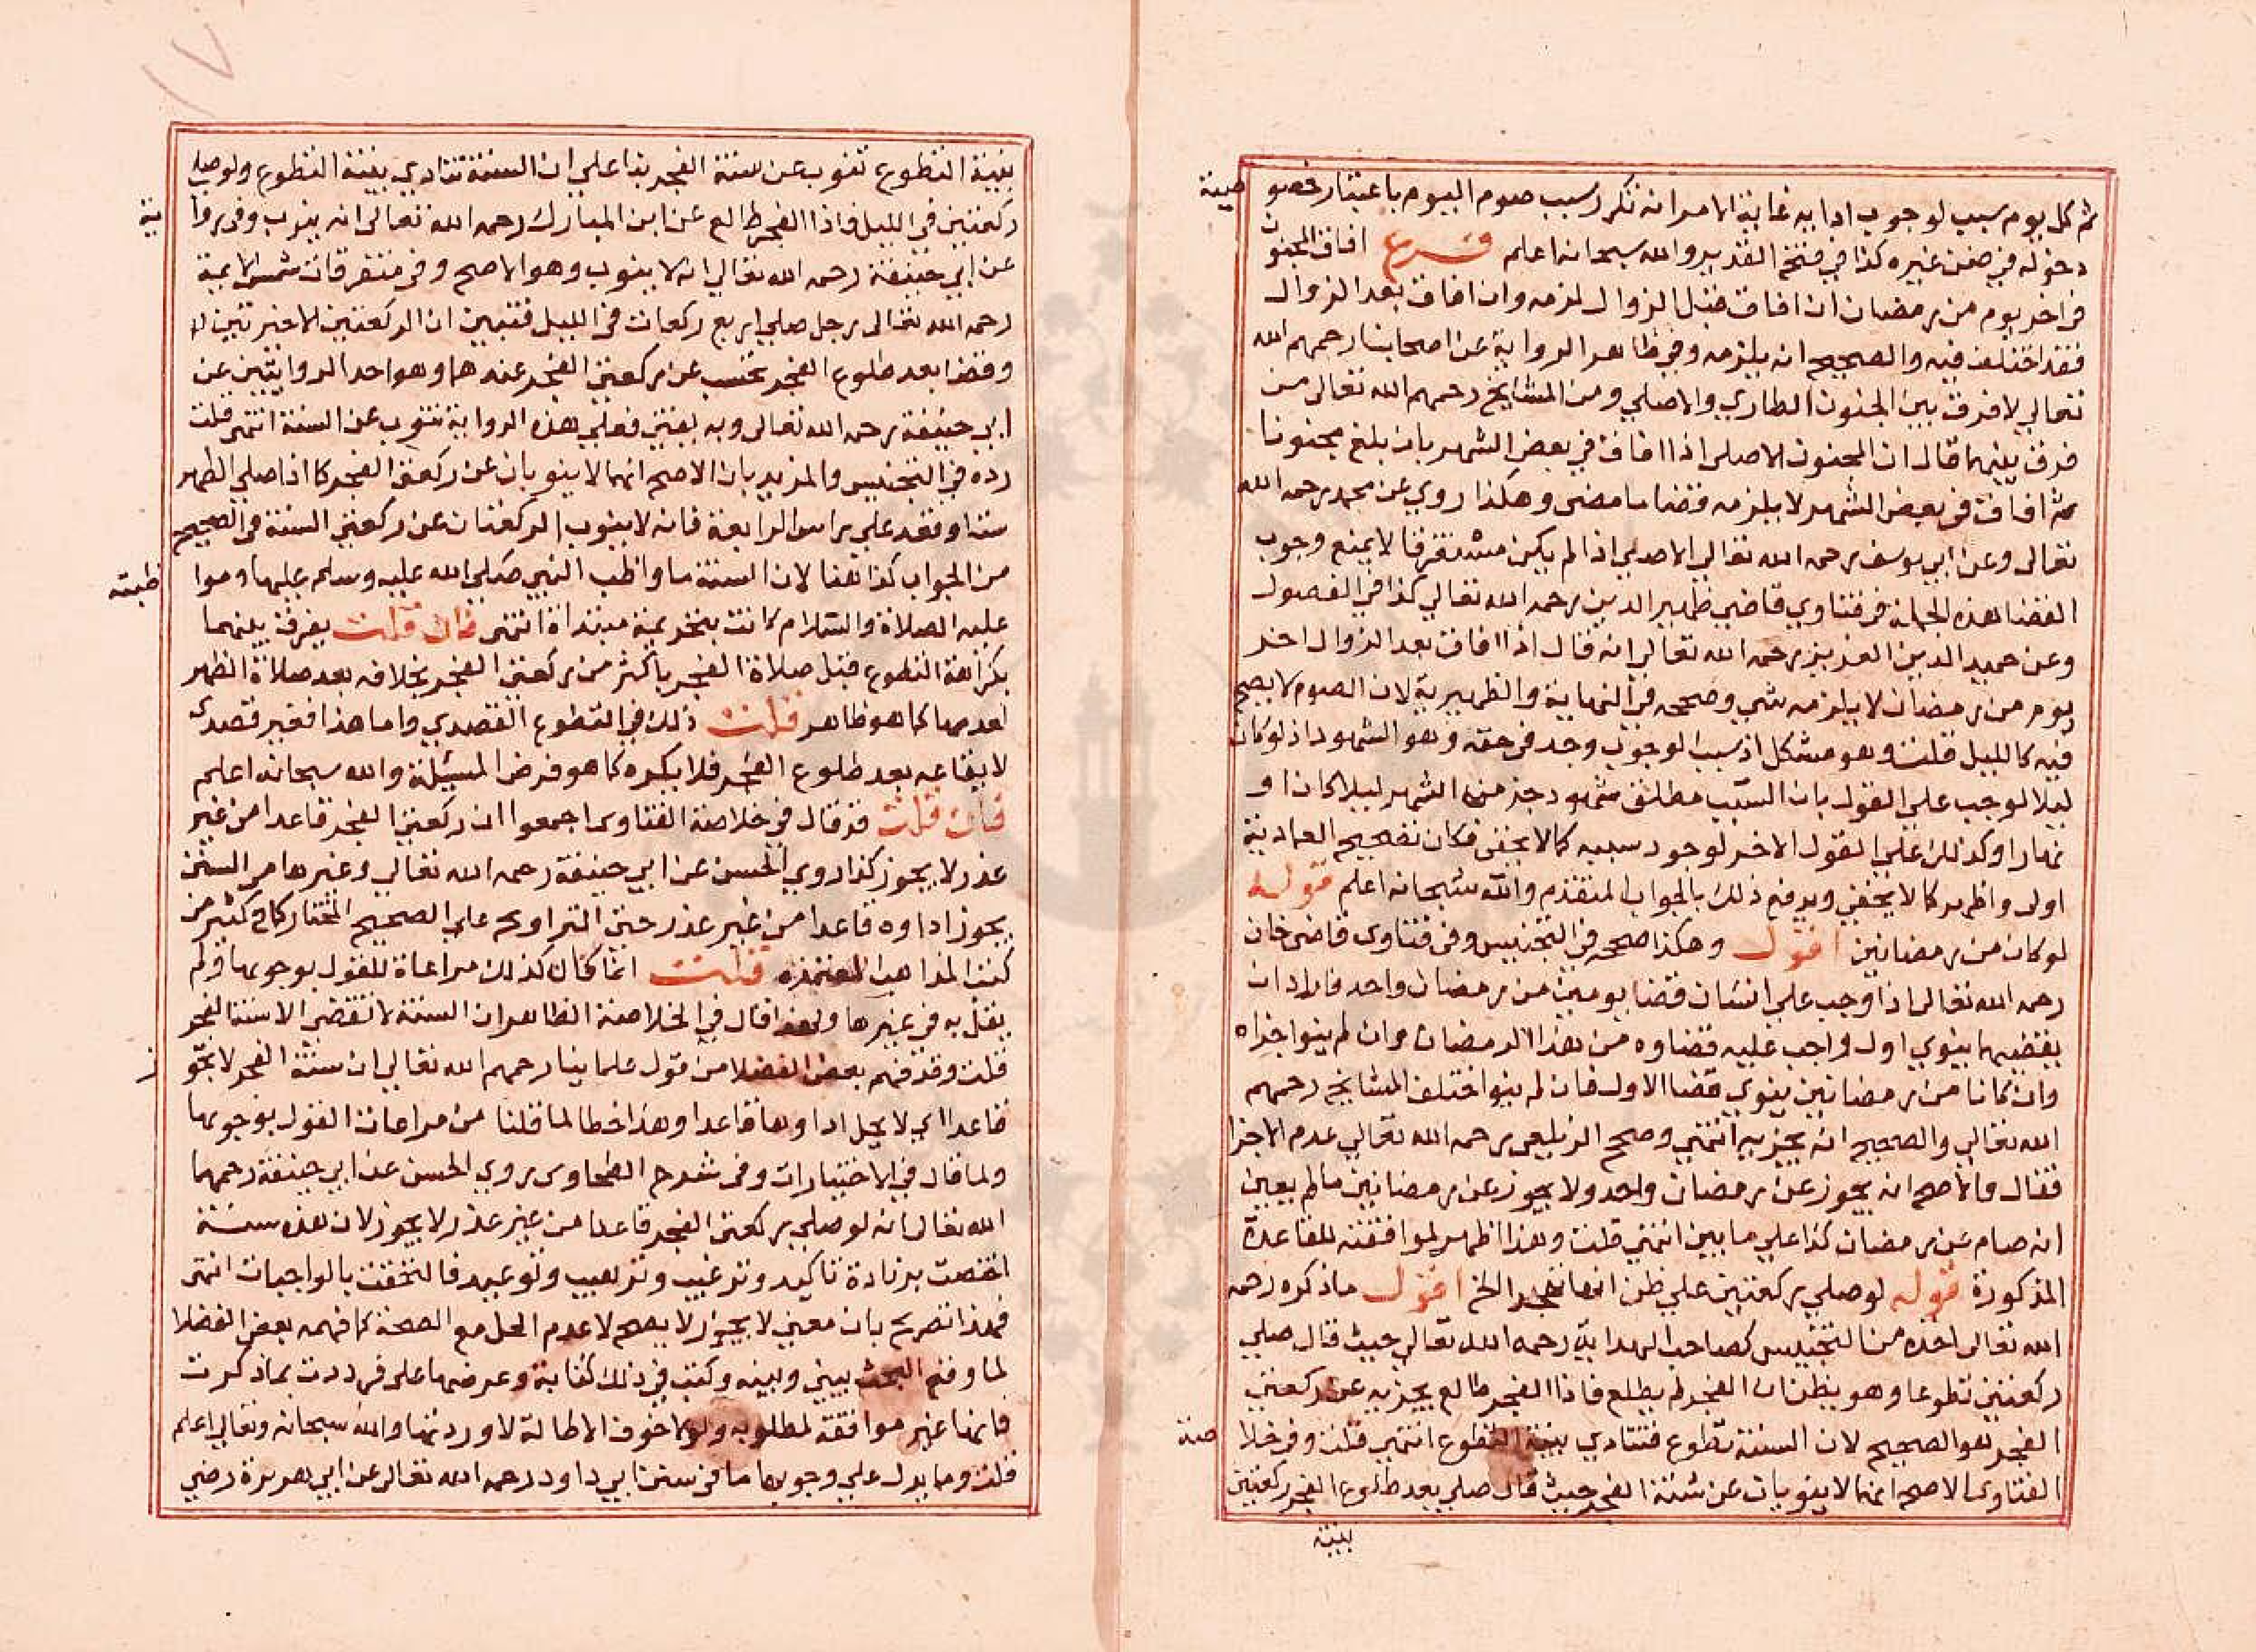 ثم كل يوم سبب لوجوب ادايه غاية الامر انه تكرر سبب صوم اليوم باعتبار خصو صيته
دخوله في ضمن غيره كذا في فتح القدير والله سبحانه اعلم فرع افاق المجنون
في اخر يوم من رمضان ان افاق قبل الزوال لزمه وان افاق بعد الزوال
فقد اختلف فيه والصحيح انه يلزمه وفي ظاهر الرواية عن اصحابنا رحمهم الله
تعالى لا فرق بين الجنون الطاري والاصلي ومن المشايخ رحمهم الله تعالى من
فرق بينهما قال ان المجنون الاصلي اذا افاق في بعض الشهر بان بلغ مجنونا
ثم افاق في بعض الشهر لا يلزمه قضا ما مضى وهكذا روي عن محمد رحمه الله
تعالى وعن ابي يوسف رحمه الله تعالى الاصلي اذا لم يكن مستغرقا لا يمنع وجوب
القضا هذه الجملة في فتاوي قاضي ظهير الدين رحمه الله تعالى كذا في الفصول
وعن حميد الدين الغزير رحمه الله تعالى انه قال اذا افاق بعد الزوال اخر
يوم من رمضان لا يلزمه شي وصححه في النهاية والظهيرية لان الصوم لا يصح
فيه كالليل قلت وهو مشكل اذ سبب الوجوب وجد في حقه وهو الشهود اذ لو كان
ليلا لوجب على القول بان السبب مطلق شهود جز من الشهر ليلا كان او
نهارا وكذلك على القول الاخر لوجود سببه كما لا يخفى فكان تصحيح العمادية
اولى واظهر كما لا يخفى ويدفع ذلك بالجواب المتقدم والله سبحانه اعلم قوله
لو كان من رمضانين اقول وهكذا صححه في التجنيس وفي فتاوى قاضي خان
رحمه الله تعالى اذا وجب على انسان قضا يومين من رمضان واحد فاراد ان
يقضيهما ينوي اول واجب عليه قضاوه من هذا الرمضان وان لم ينو اجزاه
وان كانا من رمضانين ينوي قضا الاول فان لم ينو اختلف المشايخ رحمهم
الله تعالى والصحيح انه يجزيه انتهى وصحح الزيلعي رحمه الله تعالى عدم الاجزا
فقال والاصح انه يجوز عن رمضان واحد ولا يجوز عن رمضانين ما لم يعين
انه صام عن رمضان كذا على ما بين انتهى قلت وهذا اظهر لموافقته للقاعدة
المذكورة قوله لو صلى ركعتين على ظن انها تهجد الخ اقول ما ذكره رحمه
الله تعالى اخذه من التجنيس كصاحب الهداية رحمه الله تعالى حيث قال صلى
ركعتين تطوعا وهو يظن ان الفجر لم يطلع فاذا الفجر طالع يجزيه عن ركعتي
الفجر هو الصحيح لان السنة تطوع فتتادي بنية التطوع انتهى قلت وفي خلا صة
الفتاوى الاصح انها لا ينوبان عن سنة الفجر حيث قال صلى بعد طلوع الفجر ركعتين
بنية
بنية التطوع تنوب عن سنة الفجر بنا على ان السنة تتادي بنية التطوع ولو صلى
ركعتين في الليل فاذا الفجر طالع عن ابن المبارك رحمه الله تعالى انه ينوب وفي روا ية
عن ابي حنيفة رحمه الله تعالى انه لا ينوب وهو الاصح وفي متفرقات شمس الايمة
رحمه الله تعالى رجل صلى اربع ركعات في الليل فتبين ان الركعتين الاخيرتين
وقعتا بعد طلوع الفجر تحتسب عن ركعتي الفجر عندهما وهو احد الروايتين عن
ابي حنيفة رحمه الله تعالى وبه يفتى فعلى هذه الرواية تنوب عن السنة انتهى قلت
رده في التجنيس والمزيد بان الاصح انهما لا ينوبان عن ركعتي الفجر كما اذا صلى الظهر
ستا وقعد على راس الرابعة فانه لا ينوب الركعتان عن ركعتي السنة في الصحيح
من الجواب كذا هنا لان السنة ما واظب النبي صلى الله عليه وسلم عليها وموا ظبته
عليه الصلاة والسلام كانت بتحريمة مبتداة انتهى فان قلت يفرق بينهما
بكراهة التطوع قبل صلاة الفجر باكثر من ركعتي الفجر بخلافه بعد صلاة الظهر
لعدمها كما هو ظاهر قلت ذلك في التطوع القصدي واما هذا فغير قصدي
لايقاعه بعد طلوع الفجر فلا يكره كما هو فرض المسئلة والله سبحانه اعلم
فان قلت قد قال في خلاصة الفتاوى اجمعوا ان ركعتي الفجر قاعدا من غير
عذر لا يجوز كذا روي الحسن عن ابي حنيفة رحمه الله تعالى وغيرها من السنن
يجوز اداوه قاعدا من غير عذر حتى التراويح على الصحيح المختار كما في كثير من
كتب المذاهب المعتمدة قلت انما كان كذلك مراعاة للقول بوجوبها ولم
يقل به في غيرها ولهذا قال في الخلاصة الظاهر ان السنة لا تقضى الا سنة الفجر
قلت وقد فهم بعض الفضلا من قول علماينا رحمهم الله تعالى ان سنة الفجر لا تجو ز
قاعدا اي لا يحل اداوها قاعدا وهذا خطا لما قلنا من مراعات القول بوجوبها
ولما قال في الاختيارات وفي شرح الطحاوى روي الحسن عن ابي حنيفة رحمهما
الله تعالى انه لو صلى ركعتي الفجر قاعدا من غير عذر لا يجوز لان هذه سنة
اختصت بزيادة تاكيد وترغيب وترهيب وتوعيد فالتحقت بالواجبات انتهى
فهذا تصريح بان معنى لا يجوز لا يصح لا عدم الحل مع الصحة كما فهمه بعض الفضلا
لما وقع البحث بيني وبينه وكتب في ذلك كتابة وعرضها على فرددت بما ذكرت
فانها غير موافقة لمطلوبه ولولا خوف الاطالة لاوردتها والله سبحانه وتعالى اعلم
قلت ومما يدل على وجوبها ما في سنن ابي داود رحمه الله تعالى عن ابي هريرة رضي